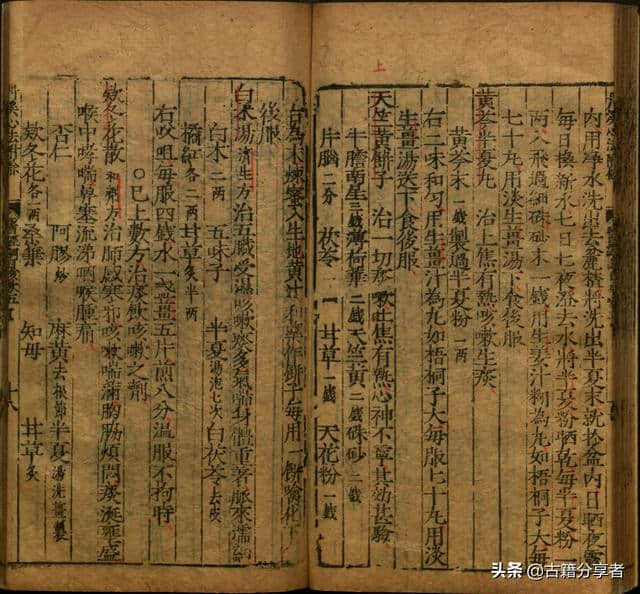 上
內用淨水洗出去將洗出半夏末就於盆內日晒夜露
每日換新水七日七夜澄去水將半夏粉晒乾每半夏粉
兩入飛過細硃砂末一錢用生姜汁糊為丸如梧桐子大每
七十丸用淡生薑湯下食後服
黃芩半夏丸 治上焦有熱咳嗽生痰
黃芩末一錢 製過半夏粉一兩
右二味和勻用生薑汁為丸如梧桐子大每服七十丸用淡
生薑湯送下食後服
天竺黃餅子 治一切痰嗽上焦有熱心神不寧其効甚驗
牛膽南星三錢 薄荷葉二錢 天竺黃二錢 硃砂二錢
片腦二分 茯苓 甘草一錢 天花粉一錢
右為末煉蜜入生地黃汁和藥作餅子每用一餅噙化下
後服
白朮湯濟生方治五臟受濕咳嗽痰多氣喘身體重著脈來濡細
白朮二兩 五味子 半夏湯泡七次 白茯苓去皮
橘紅各一兩 甘草炙半兩
右㕮咀每服四錢水一盞薑五片煎八分溫服不拘時
○已上數方治痰飲咳嗽之劑
款冬花散和劑方治肺感寒邪咳嗽喘滿胸膈煩悶痰涎壅盛
喉中哮喘鼻塞流涕咽喉腫痛
杏仁 阿膠炒 麻黃去根節 半夏湯洗薑製
款冬花各一兩 桑葉 知母 甘草炙
頭条 @古籍分享者